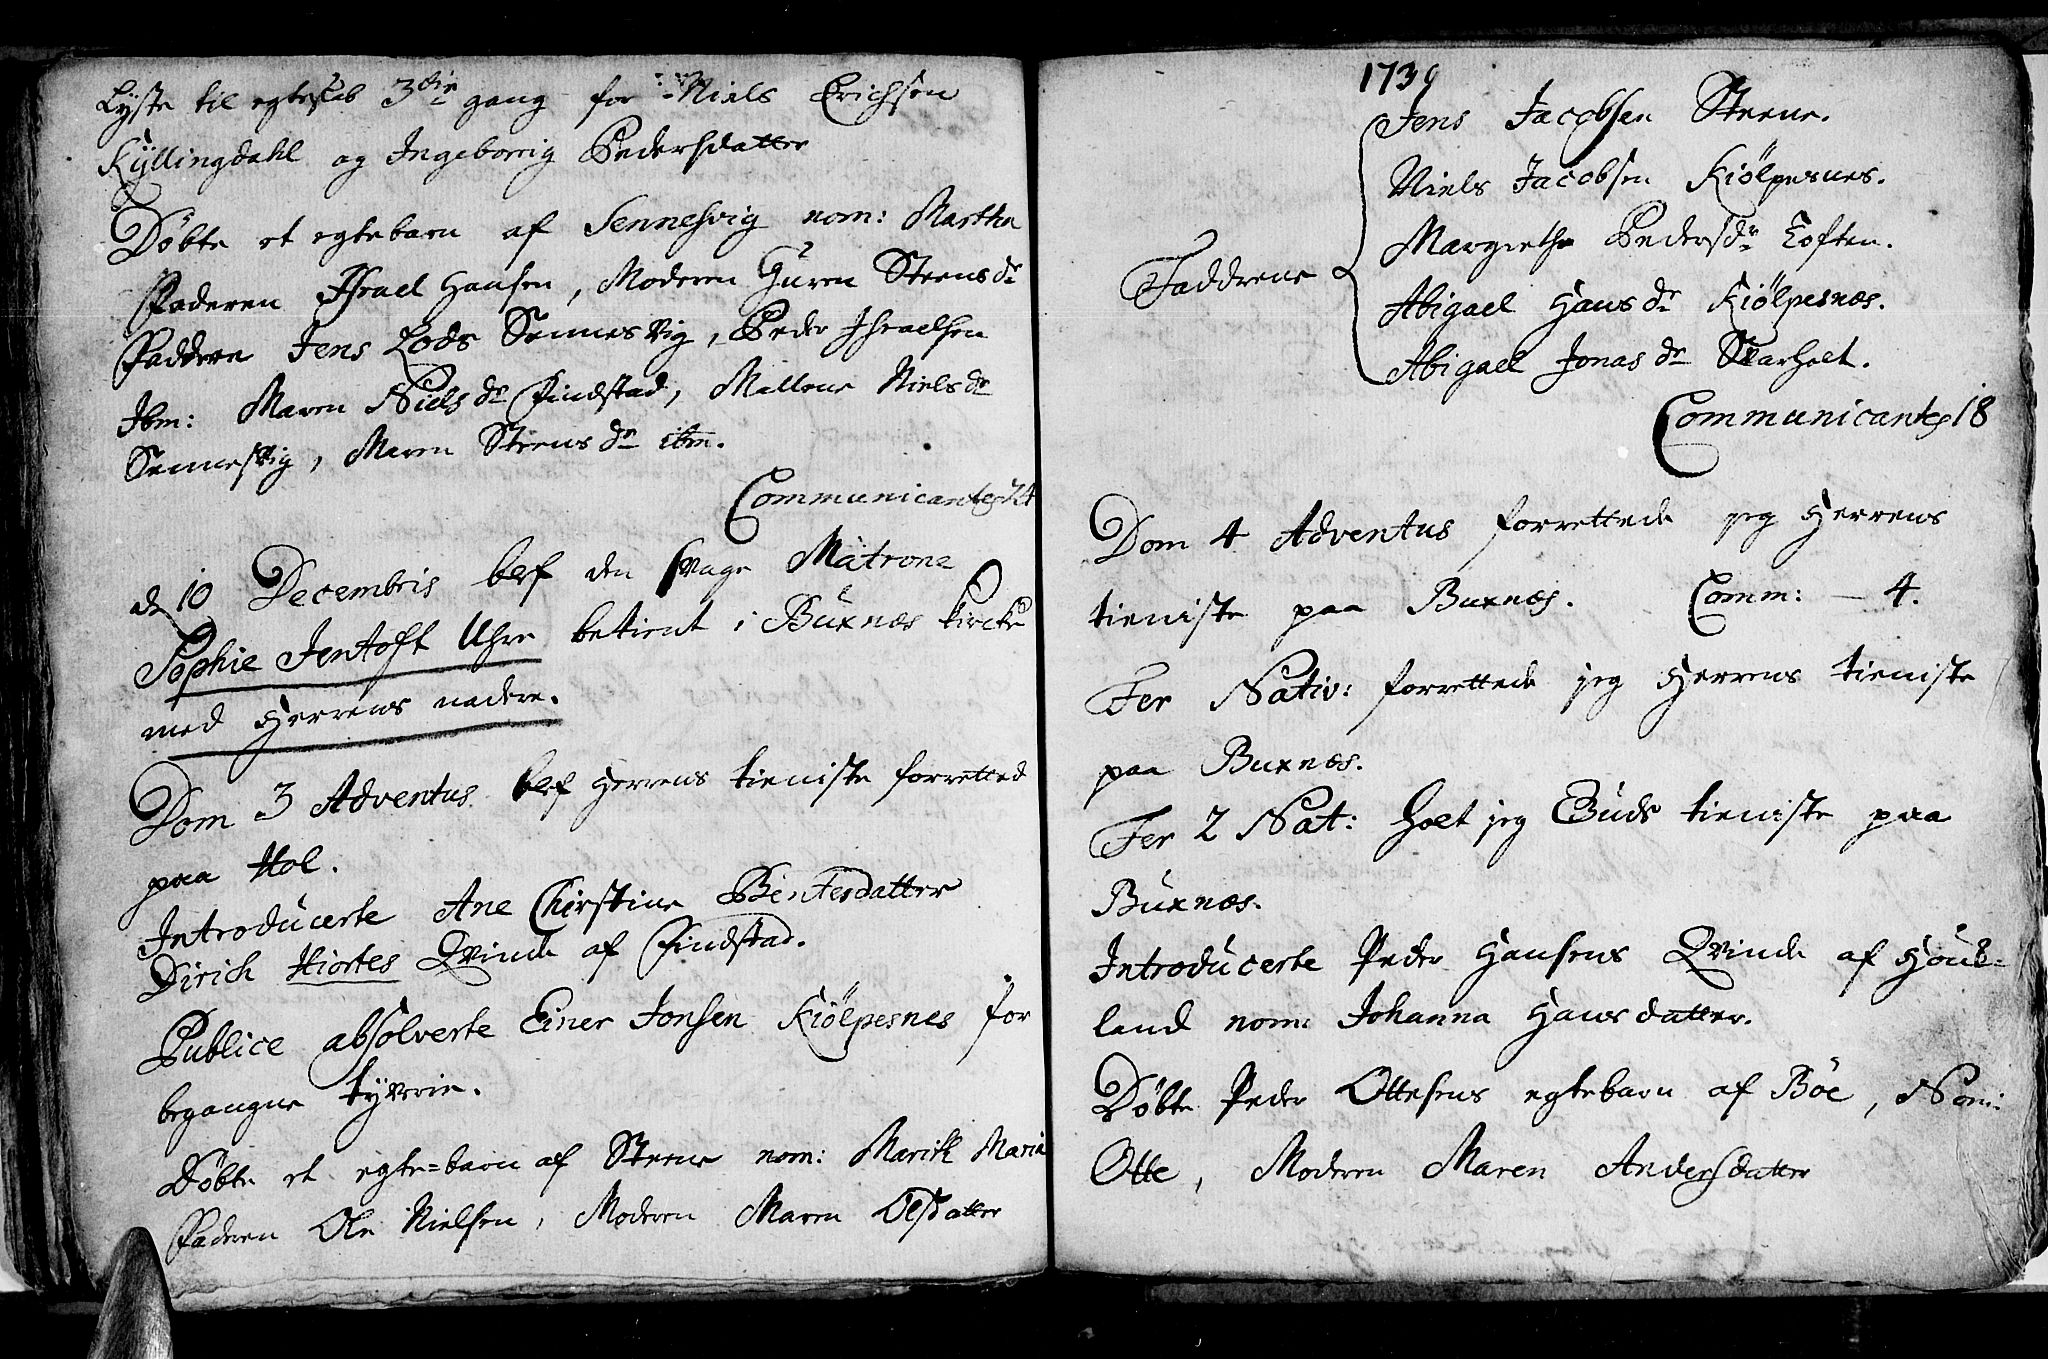 Lyste til egteskab 3die gang for Niels Erichsen
Kyllingdahl og Ingeborrig Pedersdatter
Døbte et egtebarn af Sennesvig nom: Martha
Faderen Israel Hansen, Moderen Guren Steens dr
Faddere Jens Lods Sennesvig, Peder Israelsen
Ibm: Maren Niels dr Findstad, Mallene Niels dr
Sennesvig, Maren Steens dr ibm.
Communicantes 24
d 10 Decembris blef den svage Matrone
Sophie Jentoft Uhre betient i Buxnæs kircke
med Herrens nadere.
Dom 3 Adventus blef Herrens tieniste forretted
paa Hol.
Introducerte Ane Chirstine Bentesdatter
Dirich Hiortes Qvinde af Findstad.
Publice absolverte Einer Jonsen Kiölpesnes for
begangne tyverie.
Døbte et egte=barn af Steene nom: Marith Maria
Faderen Ole Nielsen, Moderen Maren Olsdatter
1739
Jens Jacobsen Steene.
Niels Jacobsen Kiölpesnes.
Margrethe Pedersdr Toften.
Faddrene
Abigael Hans dr Kiölpesnæs.
Abigael Jonas dr Skarholt.
Communicantes 18
Dom 4 Adventus forrettede jeg Herrens
tieniste paa Buxnæs. Comm: - 4.
Fer Nativ: forrettede jeg Herrens tieniste
paa Buxnæs.
Fer 2 Nat: holt jeg Guds tieniste paa
Buxnæs.
Introducerte Peder Hansens Qvinde af Houk=
land nom: Johanna Hansdatter.
Døbte Peder Ottesens egtebarn af Böe, Nom:
Otte, Moderen Maren Andersdatter